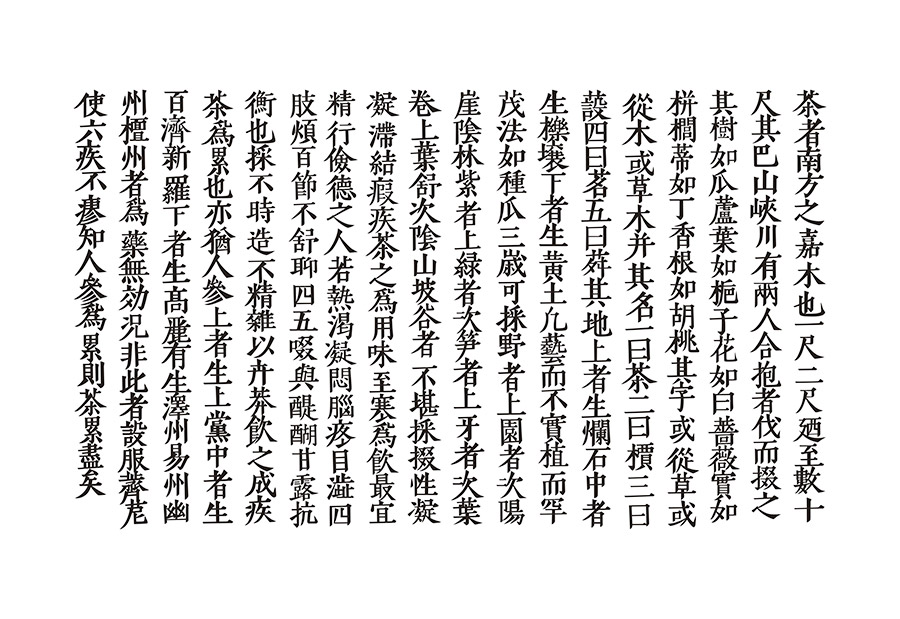 茶者南方之嘉木也一尺二尺廼至數十
尺其巴山峽川有兩人合抱者伐而掇之
其樹如瓜蘆葉如梔子花如白薔薇實如
栟櫚蒂如丁香根如胡桃其字或從草或
從木或草木并其名一曰茶二曰檟三曰
蔎四曰茗五曰荈其地上者生爛石中者
生櫟壤下者生黄土凢藝而不實植而罕
茂法如種瓜三歲可採野者上園者次陽
崖陰林紫者上緑者次笋者上牙者次葉
卷上葉舒次陰山坡谷者不堪採掇性凝
凝滯結瘕疾茶之爲用味至寒爲飲最宜
精行儉德之人若熱渴凝悶腦疼目澁四
肢煩百節不舒聊四五啜與醍醐甘露抗
衡也採不時造不精雜以卉莽飲之成疾
茶爲累也亦猶人參上者生上黨中者生
百濟新羅下者生髙麗有生澤州易州幽
州檀州者爲藥無効况非此者設服薺苨
使六疾不瘳知人參爲累則茶累盡矣